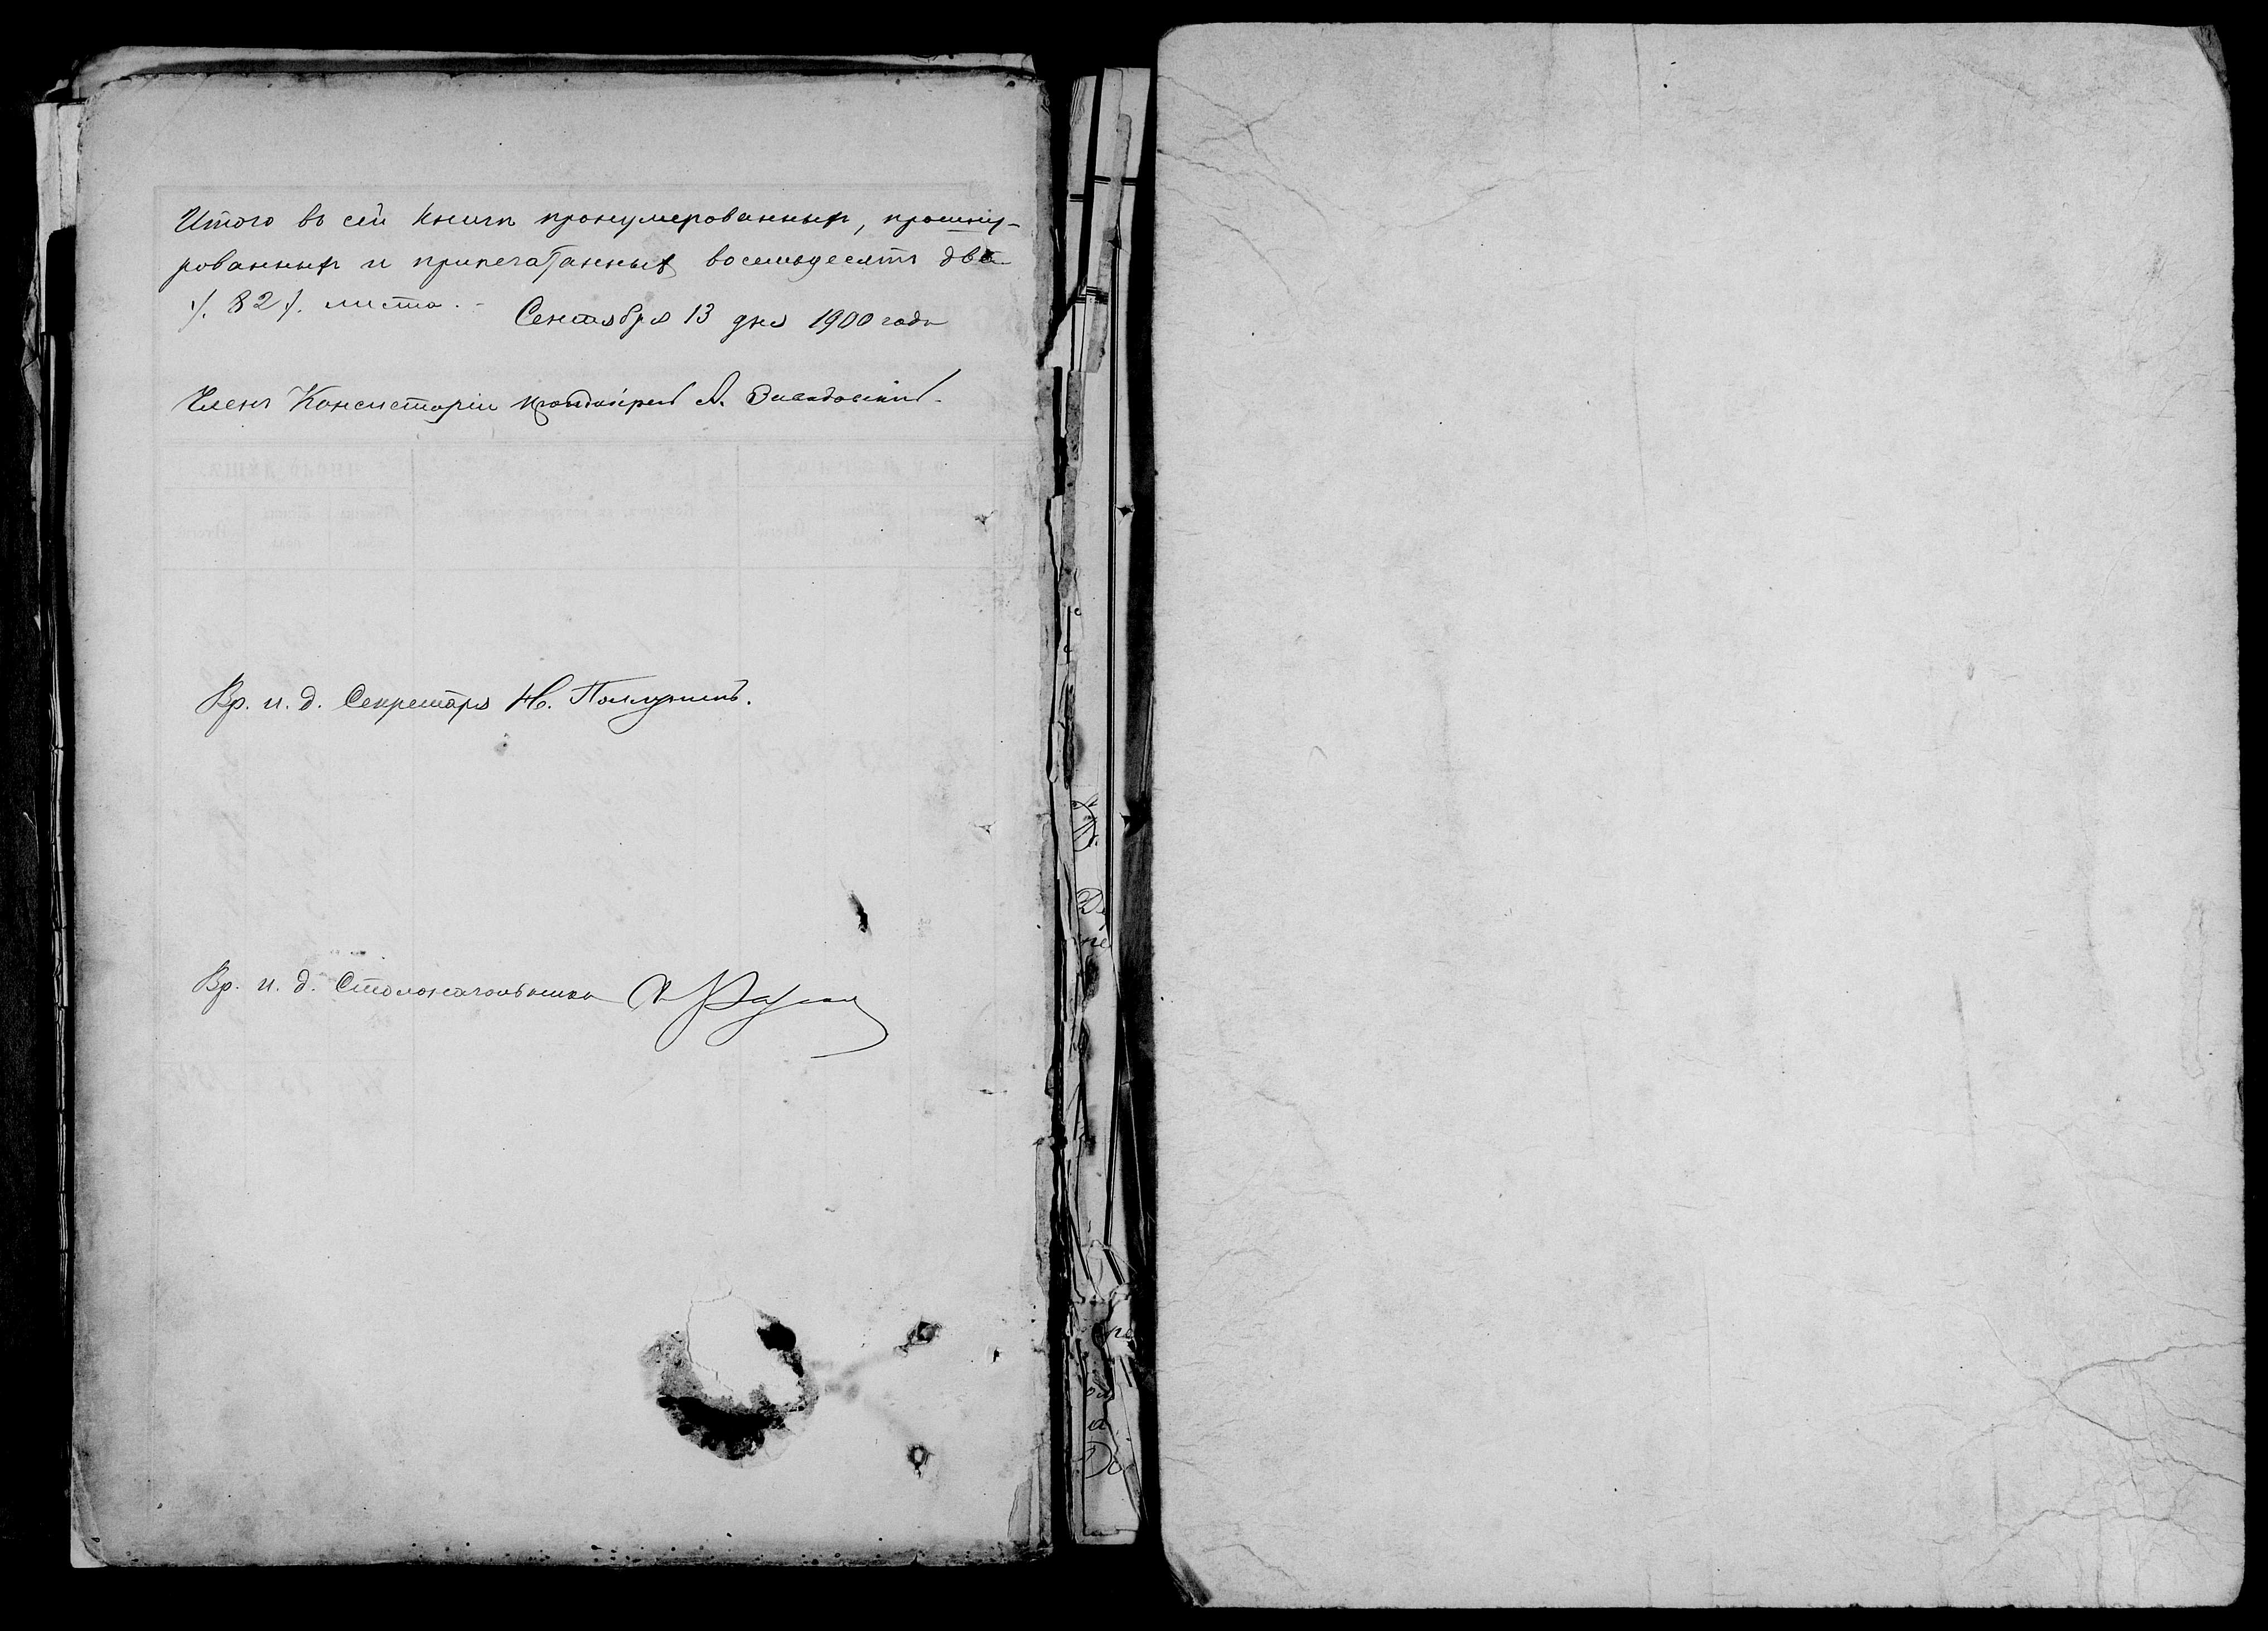 Итого въ сей книгѣ пронумерованныхъ, прошну-
рованныхъ и припечатанныхъ восемьдесятъ два
/. 82 /. листа. -
Сентября 13 дня 1900 года
Членъ Консисторіи А. Завадовскій.
Вр. и. д. Секретаря Н. Полунинъ.
Вр. и. д. Столоначальника